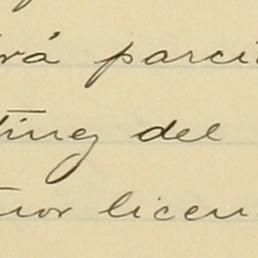 rá parci
ting del
nor licen